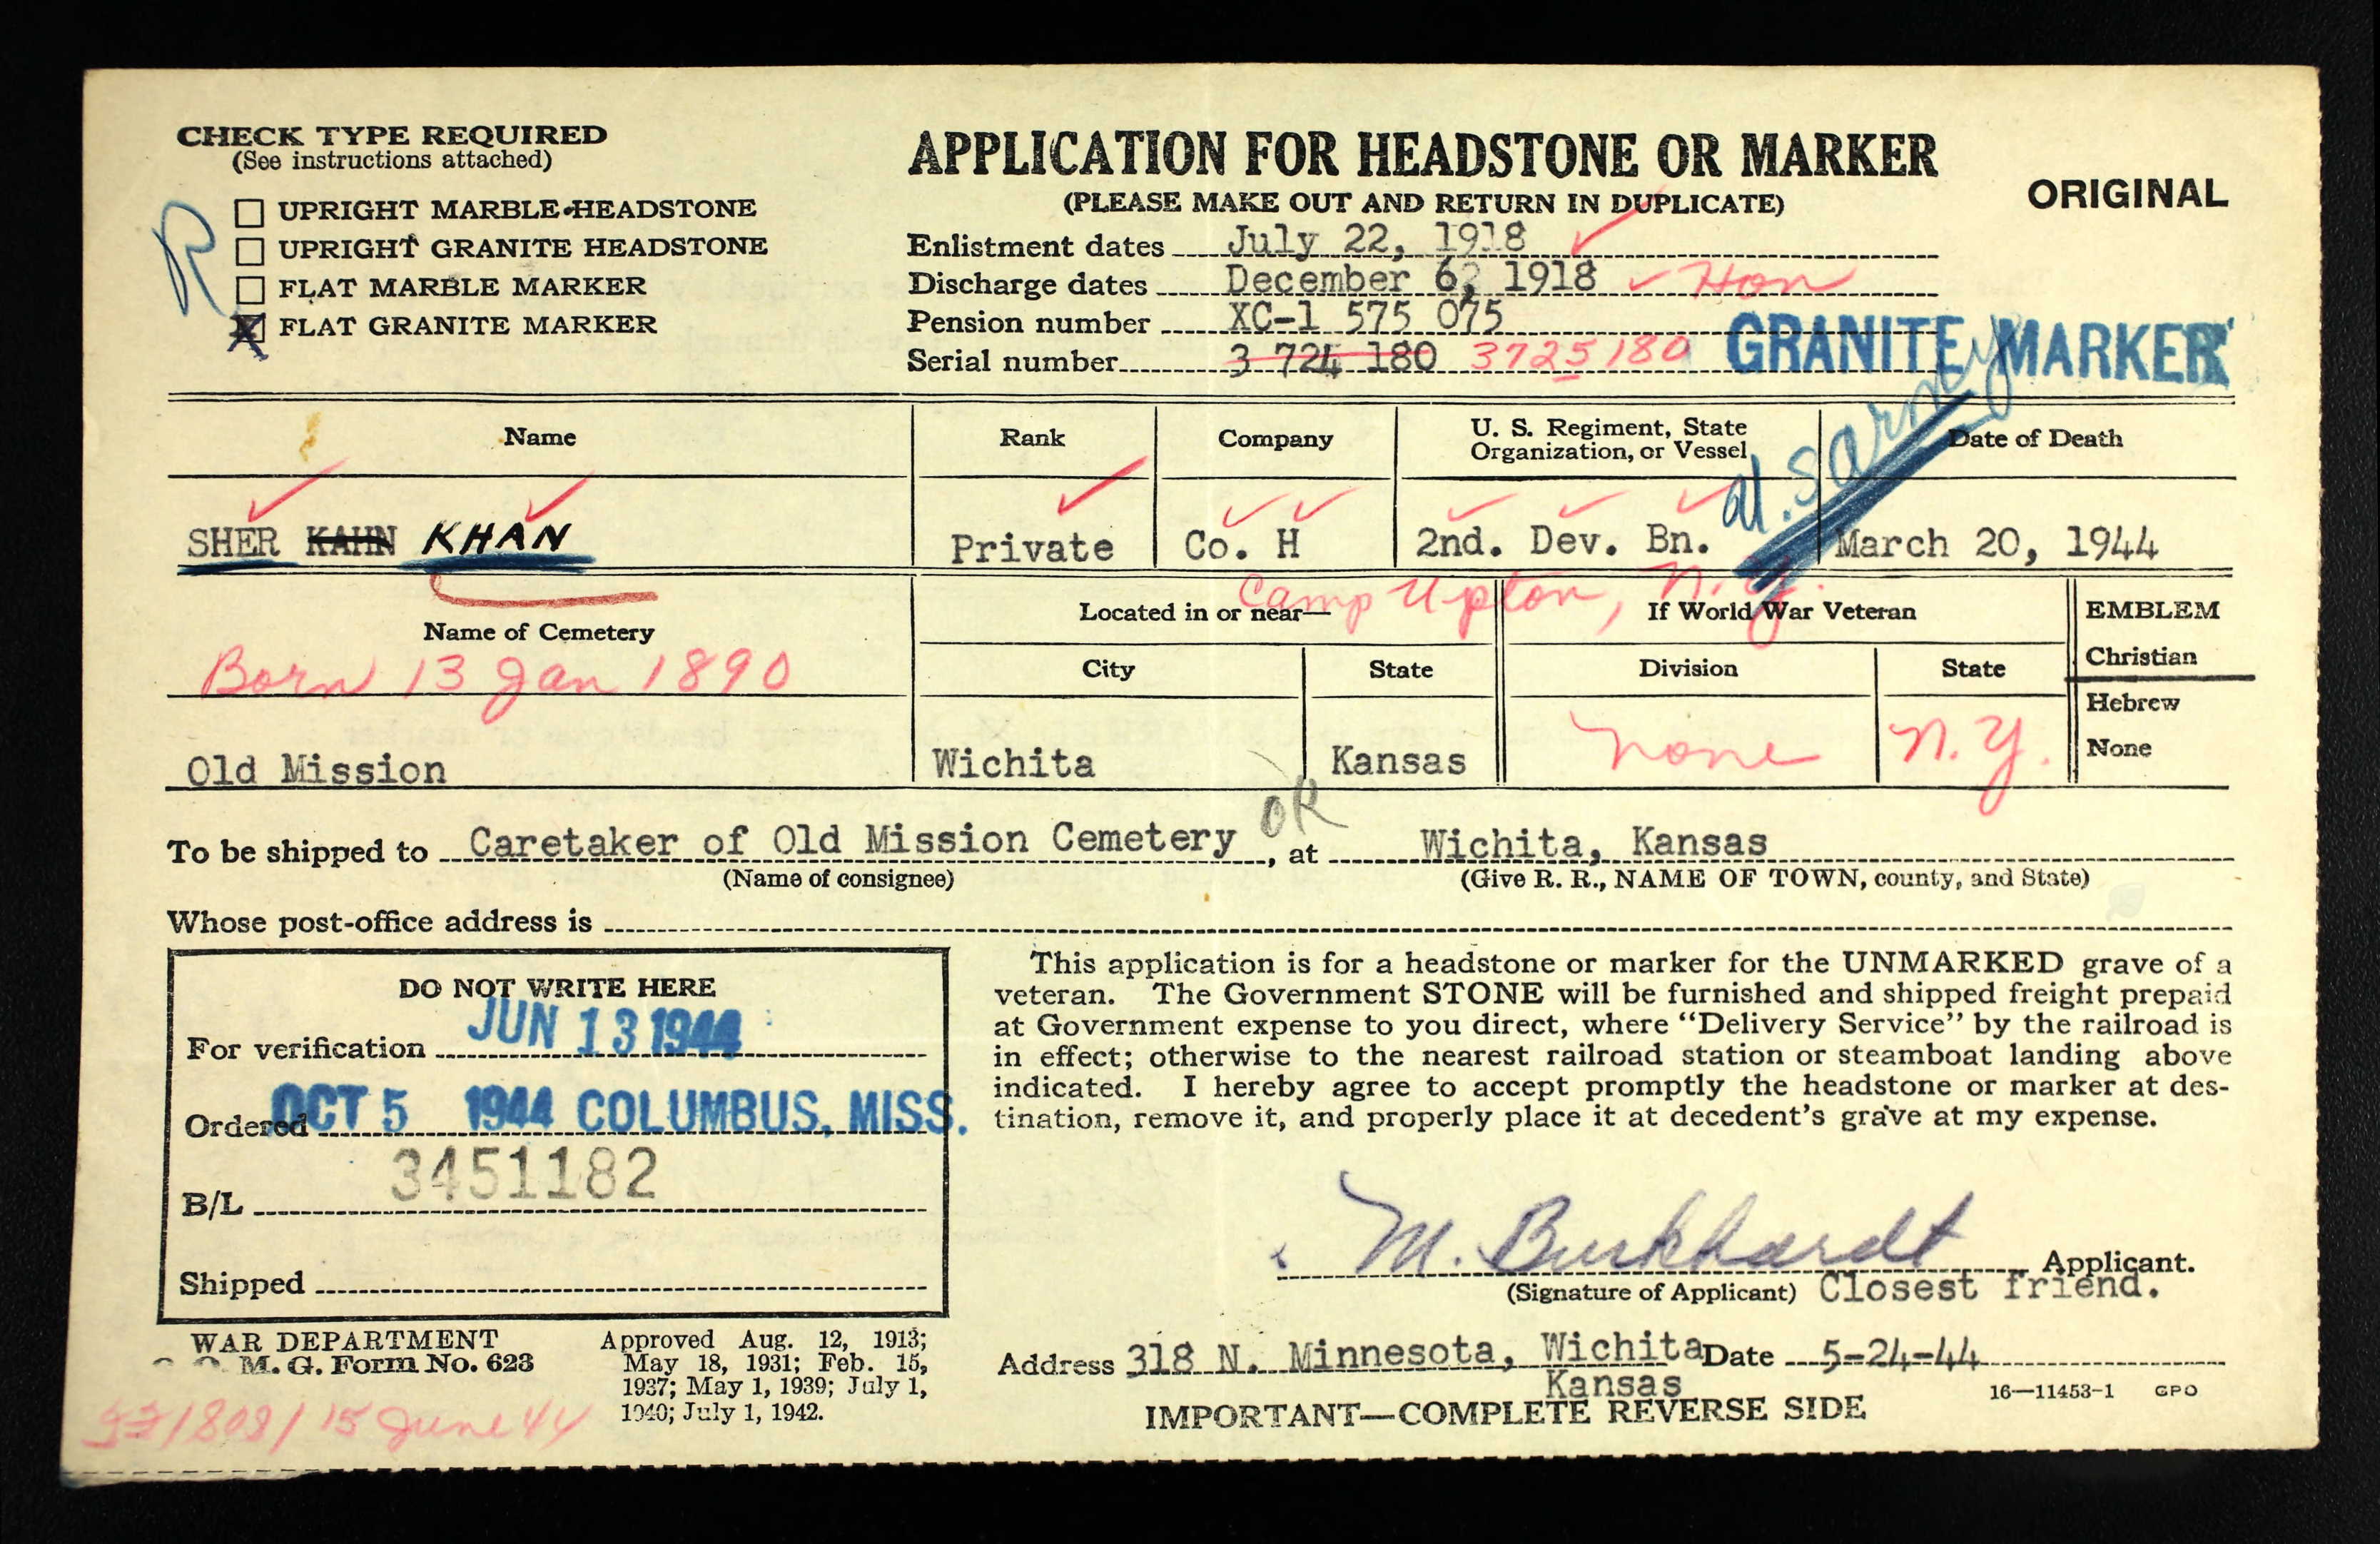 CHECK TYPE REQUIRED
(See instructions attached)
UPRIGHT MARBLE HEADSTONE
UPRIGHT GRANITE HEADSTONE
FLAT MARBLE MARKER
FLAT GRANITE MARKER
R
APPLICATION FOR HEADSTONE OR MARKER
(PLEASE MAKE OUT AND RETURN IN DUPLICATE)
ORIGINAL
Enlistment dates July 22, 1918
Discharge dates December 6, 1918 Hon
Pension number XC-1 575 075
Serial number 3 724 180 3725180
GRANITE MARKER
Name Rank Company U. S. Regiment, State Organization, or Vessel Date of Death
SHER KAHN KHAN Private Co. H 2nd. Dev. Bn. March 20, 1944
Camp Upton, N.Y.
Name of Cemetery Located in or near— If World War Veteran EMBLEM
Born 13 Jan 1890 City State Division State Christian
Hebrew
Old Mission Wichita Kansas none N.Y. None
OK
To be shipped to Caretaker of Old Mission Cemetery, at Wichita, Kansas
(Name of consignee) (Give R. R., NAME OF TOWN, county, and State)
Whose post-office address is
DO NOT WRITE HERE
For verification JUN 13 1944
Ordered OCT 5 1944 COLUMBUS, MISS.
B/L 3451182
Shipped
This application is for a headstone or marker for the UNMARKED grave of a
veteran. The Government STONE will be furnished and shipped freight prepaid
at Government expense to you direct, where "Delivery Service" by the railroad is
in effect; otherwise to the nearest railroad station or steamboat landing above
indicated. I hereby agree to accept promptly the headstone or marker at des-
tination, remove it, and properly place it at decedent's grave at my expense.
M. Burkhardt Applicant.
(Signature of Applicant) Closest friend.
Address 318 N. Minnesota, Wichita Date 5-24-44
Kansas
16—11453-1 GPO
IMPORTANT—COMPLETE REVERSE SIDE
WAR DEPARTMENT
M. G. Form No. 623
Approved Aug. 12, 1913;
May 18, 1931; Feb. 15,
1937; May 1, 1939; July 1,
1940; July 1, 1942.
15 June 44